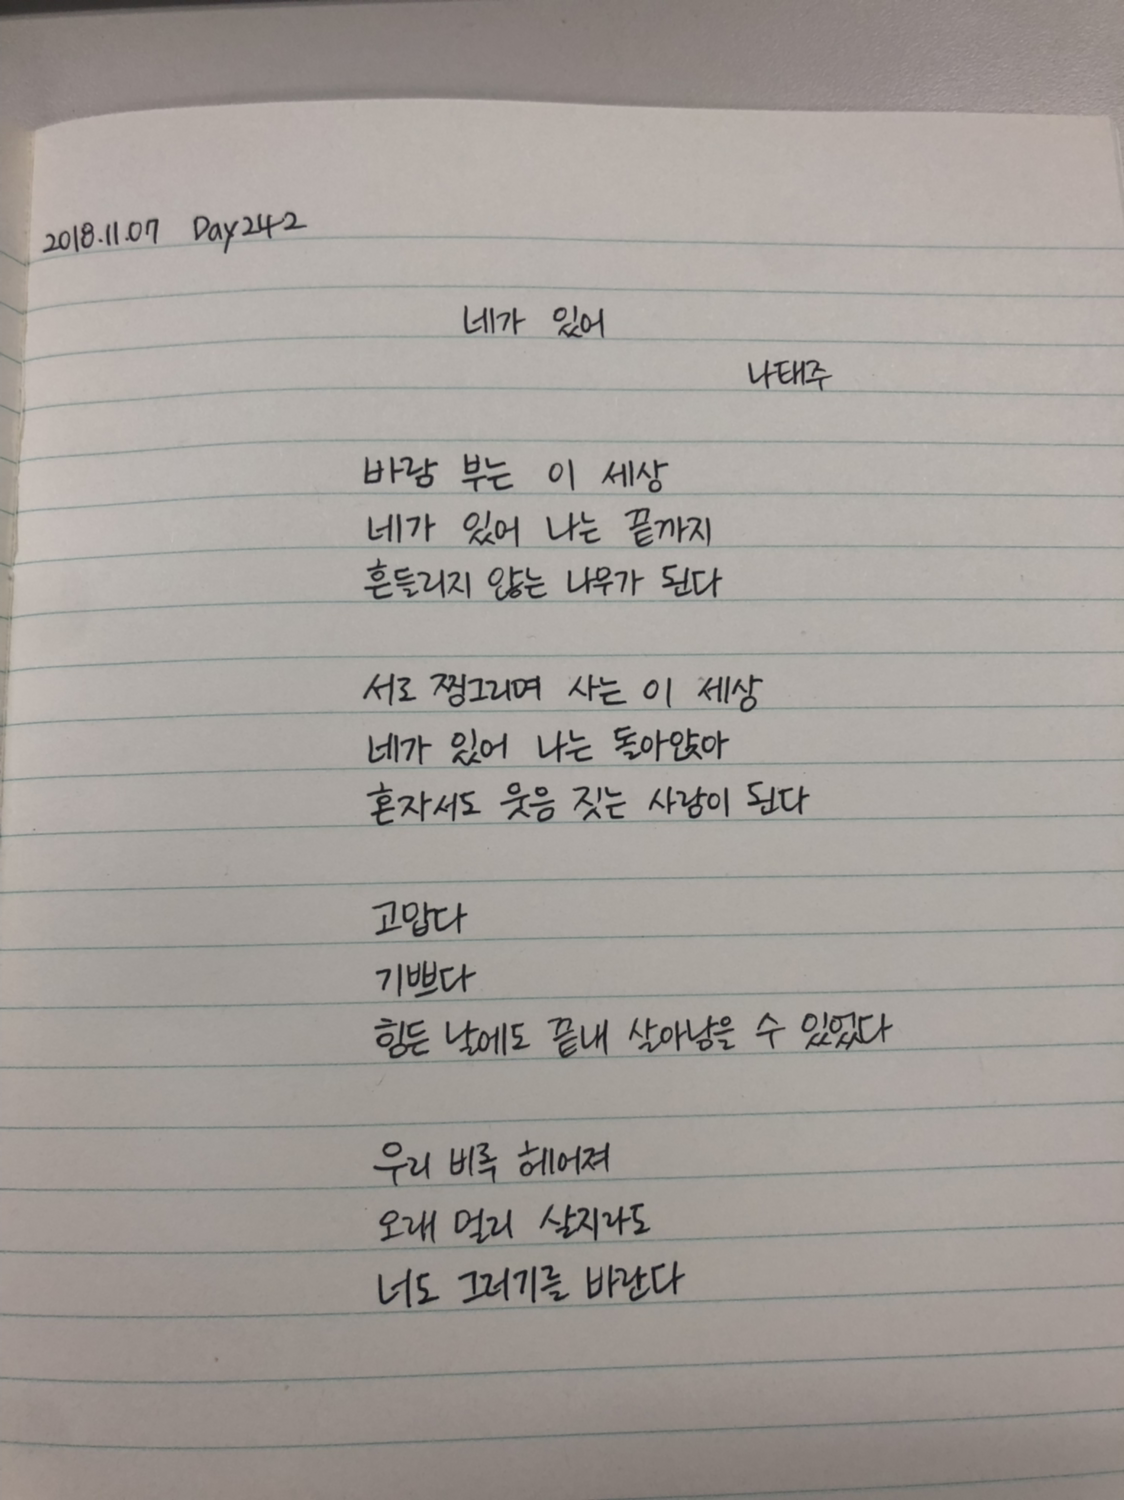 2018.11.07 Day242
네가 있어
나태주
바람 부는 이 세상
네가 있어 나는 끝까지
흔들리지 않는 나무가 된다
서로 찡그리며 사는 이 세상
네가 있어 나는 돌아앉아
혼자서도 웃음 짓는 사람이 된다
고맙다
기쁘다
힘든 날에도 끝내 살아남을 수 있었다
우리 비록 헤어져
오래 멀리 살지라도
너도 그러기를 바란다